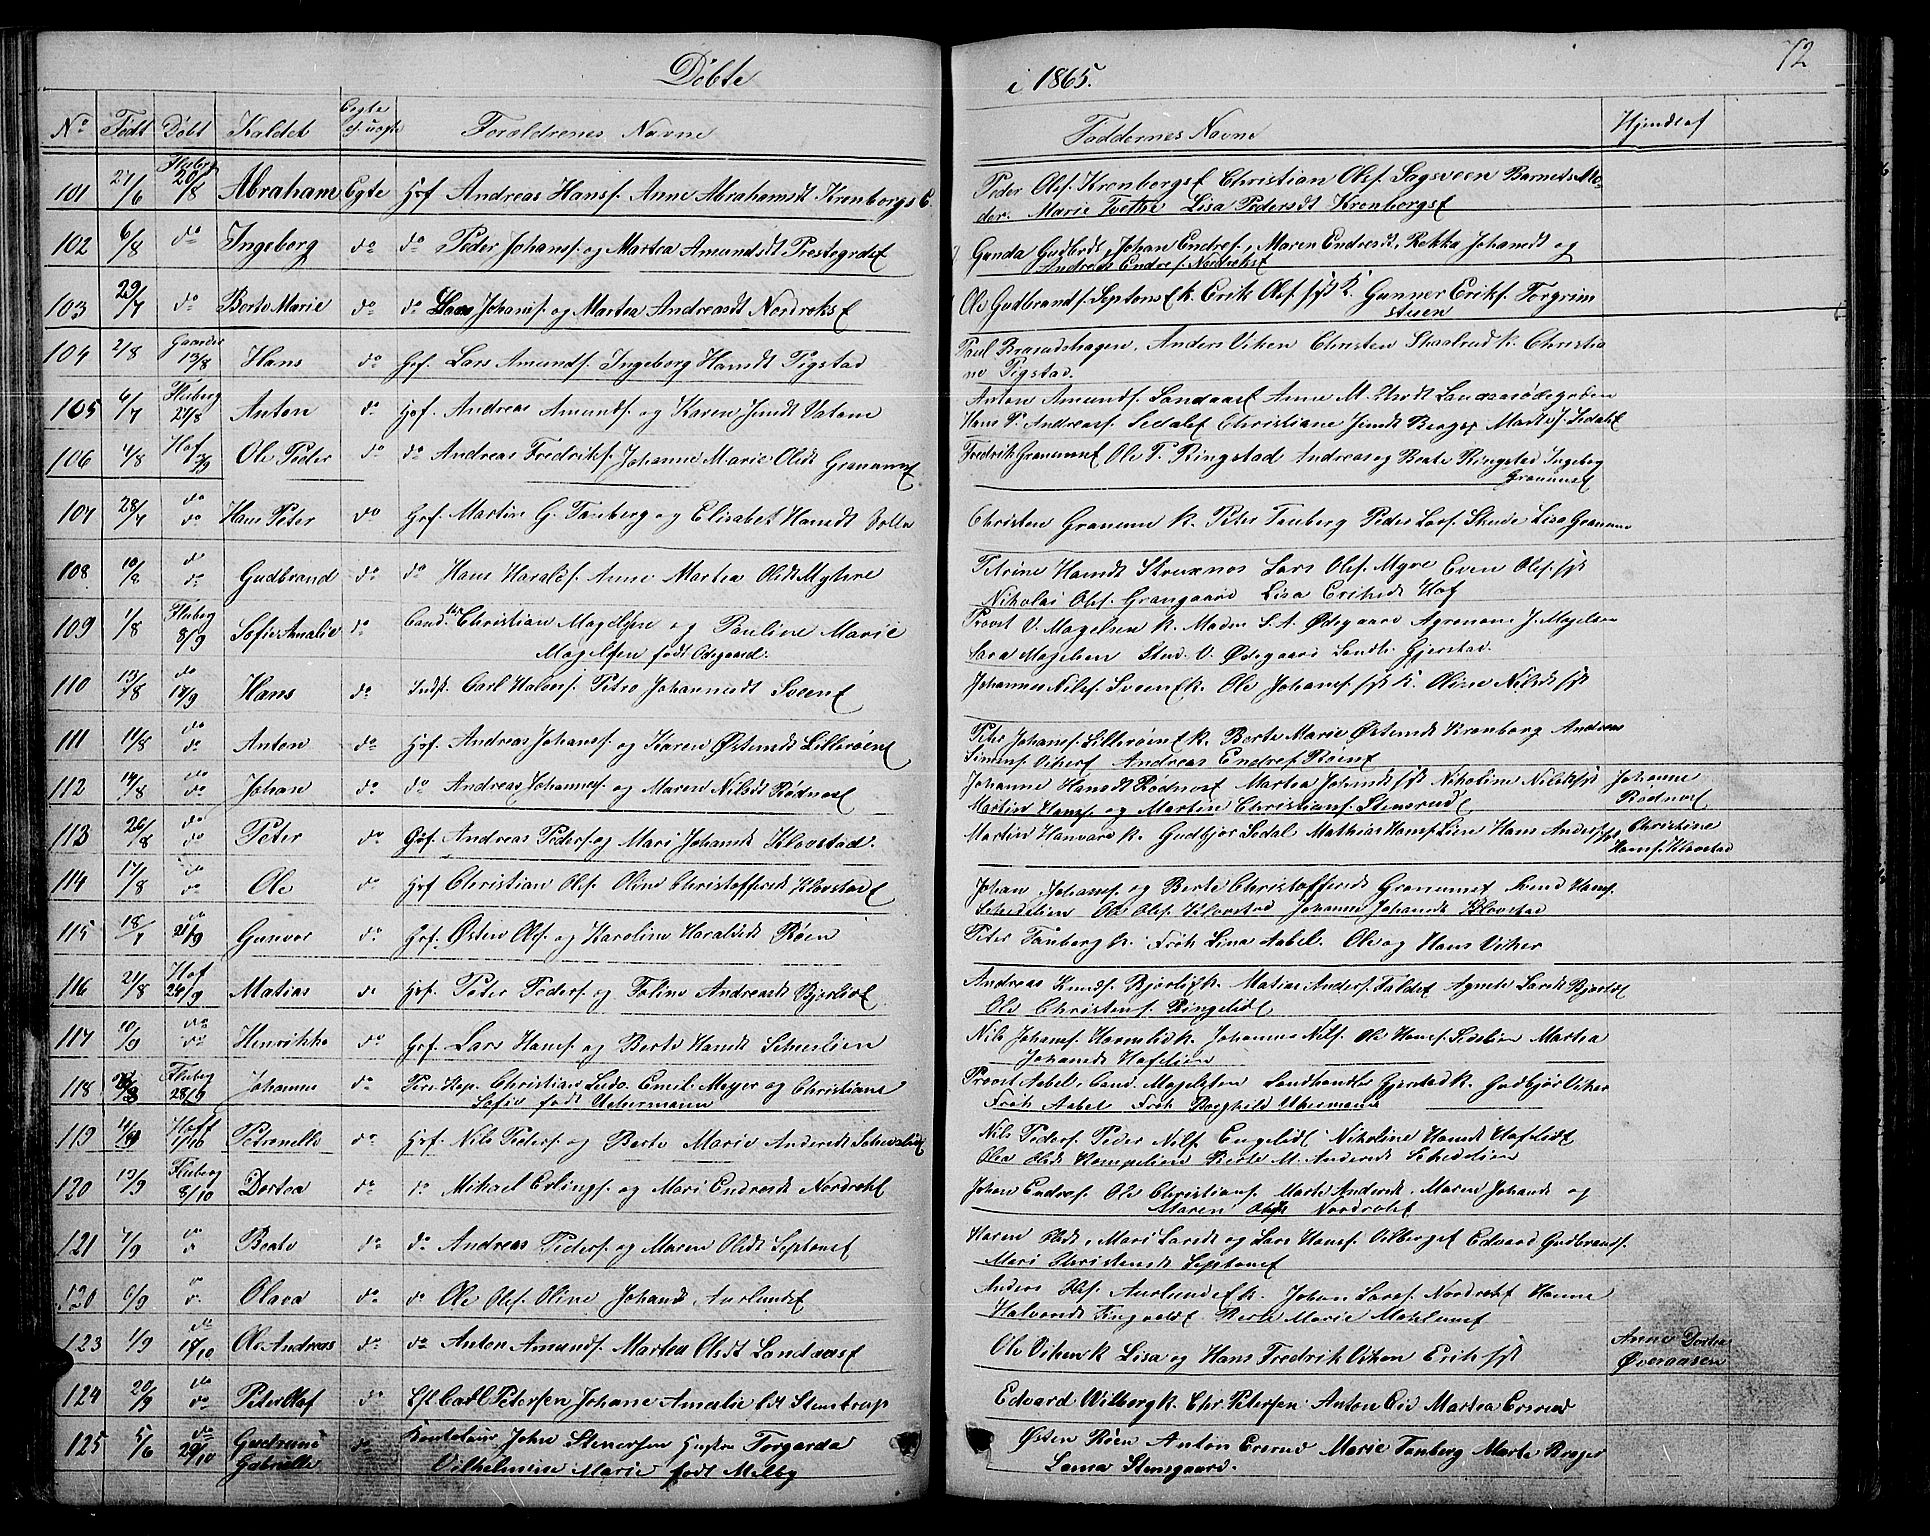 72
Døbte
i 1865.
No Født Døbt Kaldet Ægte el. uægte Forældrenes Navne Faddernes Navne Hjemdøbt af
101 27/6 Fluberg 20/8 Abraham Egte Gf. Andreas Hansf. Anne Abrahamsdt Kronborgs E.
Peder Olsf. Kronborgsf Christian Olsf. Sagsveen Barnets Mo-
der. Marie Lisa Pedersdt Kronborgsf
102 6/8 do Ingeborg do do Peder Johansf. og Martea Amundsdt Prestegrdsf
Gunda Gudbrdt, Johan Endresf., Maren Endresdt, Rekka Johansdt og
Andreas Endresf. Nordreksf
103 29/7 do Berte Marie do do Lars Johansf. og Martea Andreasdt Nordreksf
Ole Gudbrandsf. Septonsf k. Erik Olsf. sst k. Gunner Eriksf. Torgrim
stuen
104 2/8 13/8 Hans do Gf. Lars Amundsf. Ingeborg Hansdt Pigstad
Paul Brandshagen, Anders Viken Christen Skaalrud k. Christia
ne Pigstad.
105 6/7 Fluberg 27/8 Anton do Gf. Andreas Amundsf. og Karen Jensdt Vatane
Anton Amundsf. Landaasf Anne M.
Hans P. Andreasf. Sedalsf Christiane Jensdt Berge
106 4/8 Hof 3/9 Ole Peder do do Andreas Fredriksf. Johanne Marie Olsdt Granumsf
Fredrik Granumsf Ole P. Ringstad Andreas og Beate Ringstad Ingeborg
Granumsf
107 28/7 do do Hans Peter do Gf. Martin G. Tanberg og Elisabet Hansdt
Christen Granum k. Peter Tanberg Peder Larsf. Skude Lisa Granum
108 10/8 do do Gudbrand do do Hans Haraldsf. Anne Martea Olsdt Myhre
Petrine Hansdt Struxnes Lars Olsf. Myre Even Olsf. sst
Nikolai Olsf. Grangaard Lisa Eriksdt Hof
109 1/8 Fluberg 8/9 Sofie Amalie do Cand. Christian Magelssen og Pauline Marie
Magelssen født Odegaard.
Provst V. Magelsen k. Madm S. A. Ødegaard Agronom J. Magelsen
Sara Magelsen Stud. V. Ødegaard Landh. Gjerstad.
110 13/8 do 17/9 Hans do Indst. Carl Halvorsf. Petra Johannesdt Sveenf
Johannes Nilsf. Sveenf k. Ole Johansf. sst k. Oline Nilsdt sst
111 11/8 do do Anton do Gf. Andreas Johansf. og Karen Østensdt Lillerøenf
Peter Johansf. Lillerøenf k. Berte Marie Østensdt Kronborg Andreas
Simensf. Vikerf Andreas Endresf. Røenf
112 14/8 do do Johan do do Andreas Johannesf. og Maren Nilsdt Rødnesf
Johanne Hansdt Rødnesf Martea Johansdt sst Nikoline Nilsdt sst Johanne
Martin Hansf. og Martin Christiansf. Stensrudf Rødnesf
113 26/8 do do Peter do Gf. Andreas Pedersf. og Mari Johansdt Klovstad.
Martin Hanvare k. Gudbjør Sedal Mathias Hansf. Lien Hans Andersf. sst Christine
Hansf. Klovstad
114 17/8 do do Ole do Gf. Christian Olsf. Oline Christoffersdt Klovstadf
Johan Johansf. og Berte Christoffersdt Granumsf Svend Hansf.
Schiselien Ole Olsf. Klovstad Johanne Johansdt Klovstad
115 18/7 do 21/9 Gunvor do Gf. Østen Olsf. og Karoline Haraldsdt Røen
Peter Tanberg k. Frøk Lina Aabel. Ole og Hans Viker
116 21/8 Hof 24/9 Matias do Gf. Peter Pedersf. og Joline Andreasdt Bjerlief
Andreas Knudsf. Bjerlief k. Matias Andersf. Faldet Agnete Larsdt Bjerlief
Ole Christensf. Ringelief
117 10/9 do do Henrikke do Gf. Lars Hansf. og Berte Hansdt Schiselien
Nils Johansf. Havnelid k. Johannes Nilsf. Ole Hansf. Sisslien Martea
Johansdt Hofslien
118 Fluberg 28/9 Johanne do Pers. Kap. Christian Ludv. Emil Meyer og Christiane
Sofie født Uchermann
Provst Aabel, Cand. Magelsten Landhandler Gjerstad k. Gudbjør Viker
Frøk Aabel Frøk Borghild Uchermann
119 Hoff 1/10 Petronelle do Gf. Nils Pedersf. og Berte Marie Andersdt Schiselief
Nils Pedersf. Peder Nilsf. Engeliet Nikoline Hansdt Hofsliet
Olea Olsdt Hompelien Berte M. Andersdt Schiselien
120 13/9 Fluberg 8/10 Dortea do do Mikael Erlingsf. og Mari Endresdt Nordrekf
Johan Endresf. Ole Christiansf. Marte Andersdt, Maren Johansdt og
Maren Olsdt Nordrekf
121 7/9 do do Beate do do Andreas Pedersf. og Maren Olsdt Septonsf
Karen Olsdt, Mari Larsdt og Lars Hansf. Vilbergsf Edvard Gudbrandsf.
Mari Christensdt Septonsf
120 6/9 do do Olava do do Ole Olsf. Oline Johansdt Aurlundsf
Anders Olsf. Aurlundsf k. Johan Larsf. Nordrekf Hanne
Halvorsdt Berte Marie Mæhlumsf
123 1/9 do 17/10 Ole Andreas do do Anton Amundsf. Martea Olsdt Landaasf
Ole Viken k Lisa og Hans Fredrik Viken Erik sst Anne Dortea
Øveraasen
124 20/9 do do Peter Olaf do Sf. Carl Petersen Johane Amalie Stenstrup
Edvard Wilberg k. Chr. Petersen Anton Eid Martea Ersrud
125 5/6 do 29/10 Gertrune Gabrielle do Kontorleur John Stenersen Hustru Torgarda
Vilhelmine Marie født Melby
Østen Røen Anton Ersrud Marie Tanberg Marte Brager
Lama Stensgaard.